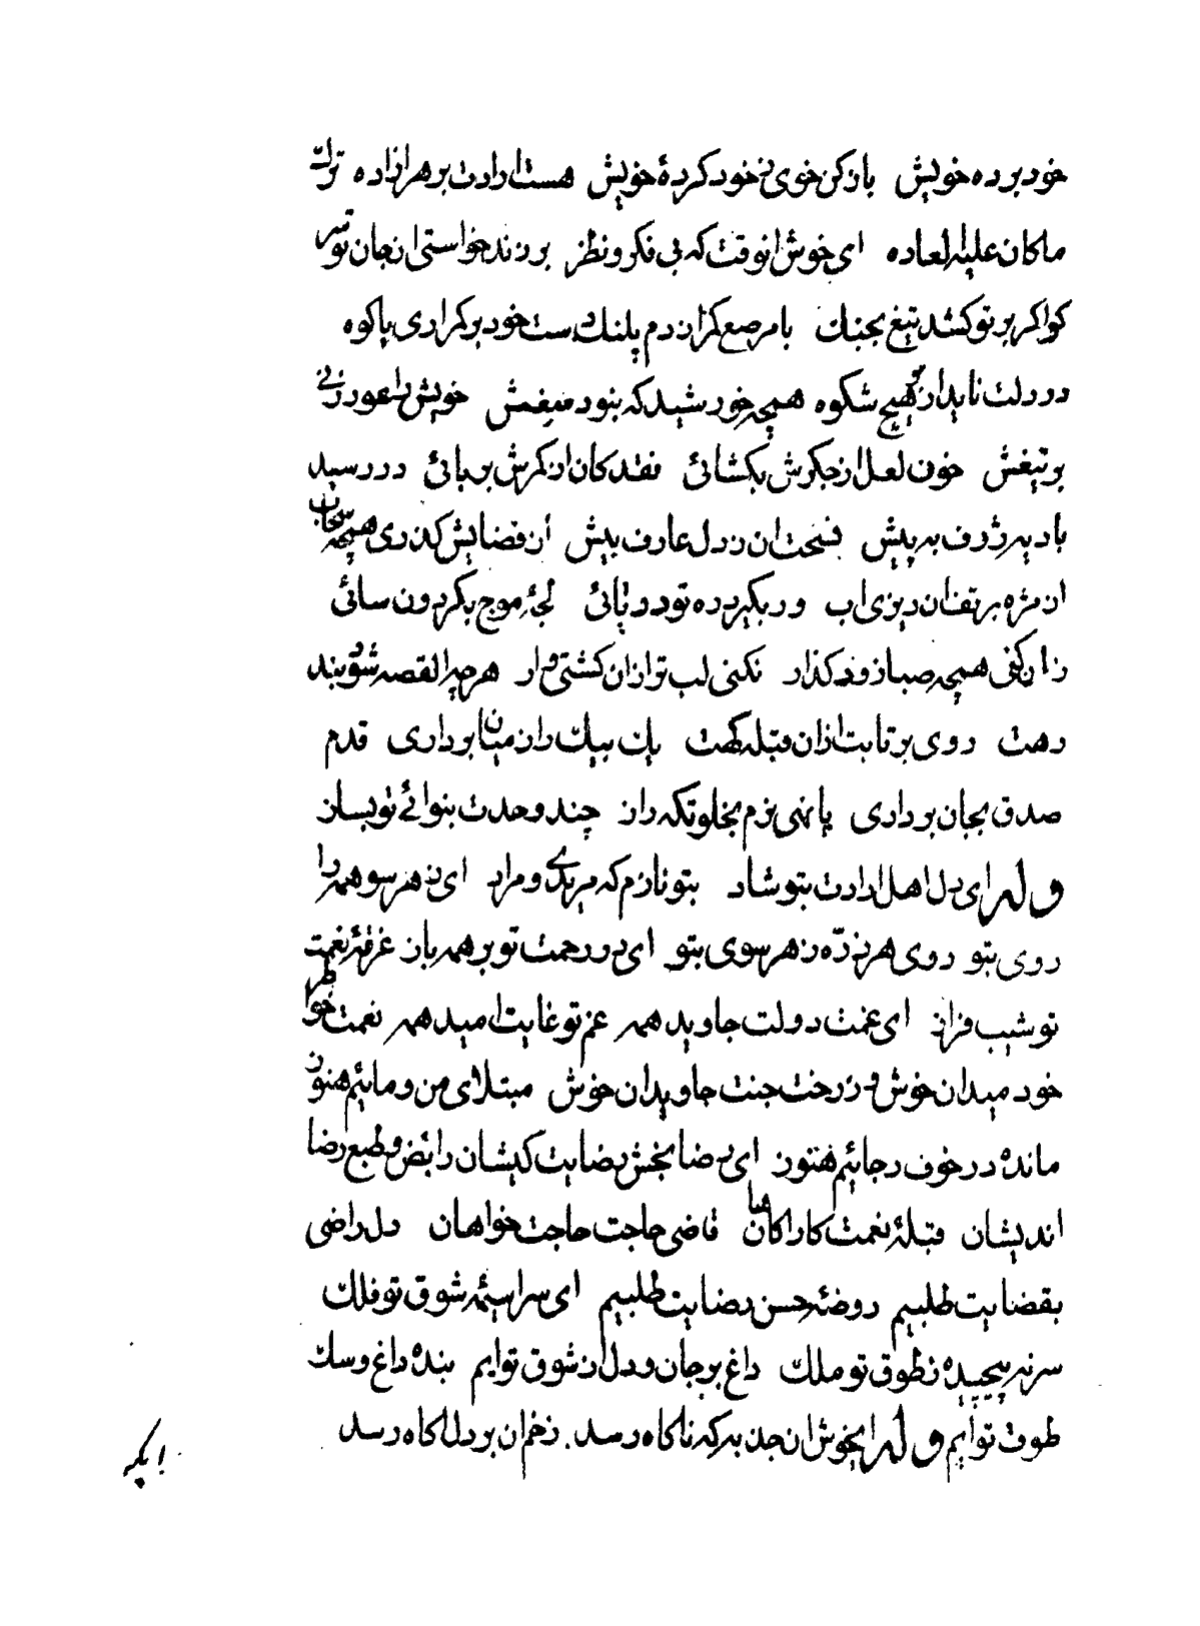 خود برده خویش باز کن خوی ز خود کردهٔ خویش هست ارادت بر هر ازاده ترك
ما کان علیه العاده ای خوش انوقت که بی فکر و نظر بر زند خواستی از جان تو سر
کوا کر بر تو کشد تیغ بجنك با مرصع کمر از دم پلنك دست خود بر کمر اری با کوه
در دلت ناید از هیچ شکوه همچه خورشید که بنود میغش خویش را عور زنی
بر تیغش خون لعل از جکرش بکشائی نقد کان از کمرش بربائی در رسید
بادیه ژرف به پیش فسحت ان ز دل عارف بیش از فضایش کذری همچه سحاب
از مژه بر تفتان ریزی اب ور بکیرد ره تو دریائی لجهٔ موج بکردون سائی
زان کنی همچه صبا زود کذار نکنی لب تر ازان کشتی وار هر چه القصه شود بند
رهت روی بر تابت ازان قبله کهت یك بیك را ز میان برداری قدم
صدق بجان برداری پا نهی نرم بخلوتکه راز چند وحدت بنوای تو بساز
و له ای دل اهل ارادت بتو شاد بتو نازم که مریدی و مراد ای ز هر سو همه را
روی بتو روی هر ذرّه ز هر سوی بتو ای در رحمت تو بر همه باز غرقهٔ نعمت
تو شیب و فراز ای غمت دولت جاوید همه غم تو غایت امید همه نعمت خوا
خود میدان خوش و ز رخت جنت جاویدان خوش مبتلای من و مائیم هنوز
ماندهٔ در خوف و رجائیم هنوز ای رضا بخش رضایت کیشان رایض و طبع رضا
اندیشان قبلهٔ نعمت کار اکاهان قاضی حاجت حاجت خواهان دل راضی
بقضایت طلبیم روضهٔ حسن رضایت طلبیم ای سراسیمه شوق تو فلك
سر نه پیچیده ز طوق تو ملك داغ بر جان و دل از شوق توایم بندهٔ داغ و سك
طوق توایم و له ایخوش ان جذبه که ناکاه رسد زخم ان بر دل اکاه رسد